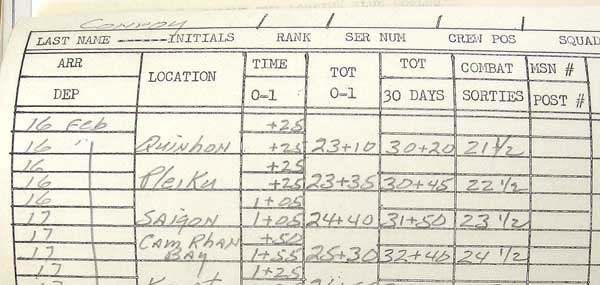 CONROY / / / /
LAST NAME ------INITIALS RANK SER NUM CREW POS SQUAD
ARR LOCATION TIME TOT TOT COMBAT MSN #
DEP 0-1 0-1 30 DAYS SORTIES POST #
16 Feb +25
16 " Quinhon +25 23+10 30+20 21 1/2
16 +25
16 Pleiku +25 23+35 30+45 22 1/2
16 1+05
17 SAIGON 1+05 24+40 31+50 23 1/2
17 CAM RHAN +50
17 BAY 1+55 25+30 32+40 24 1/2
17 1+25